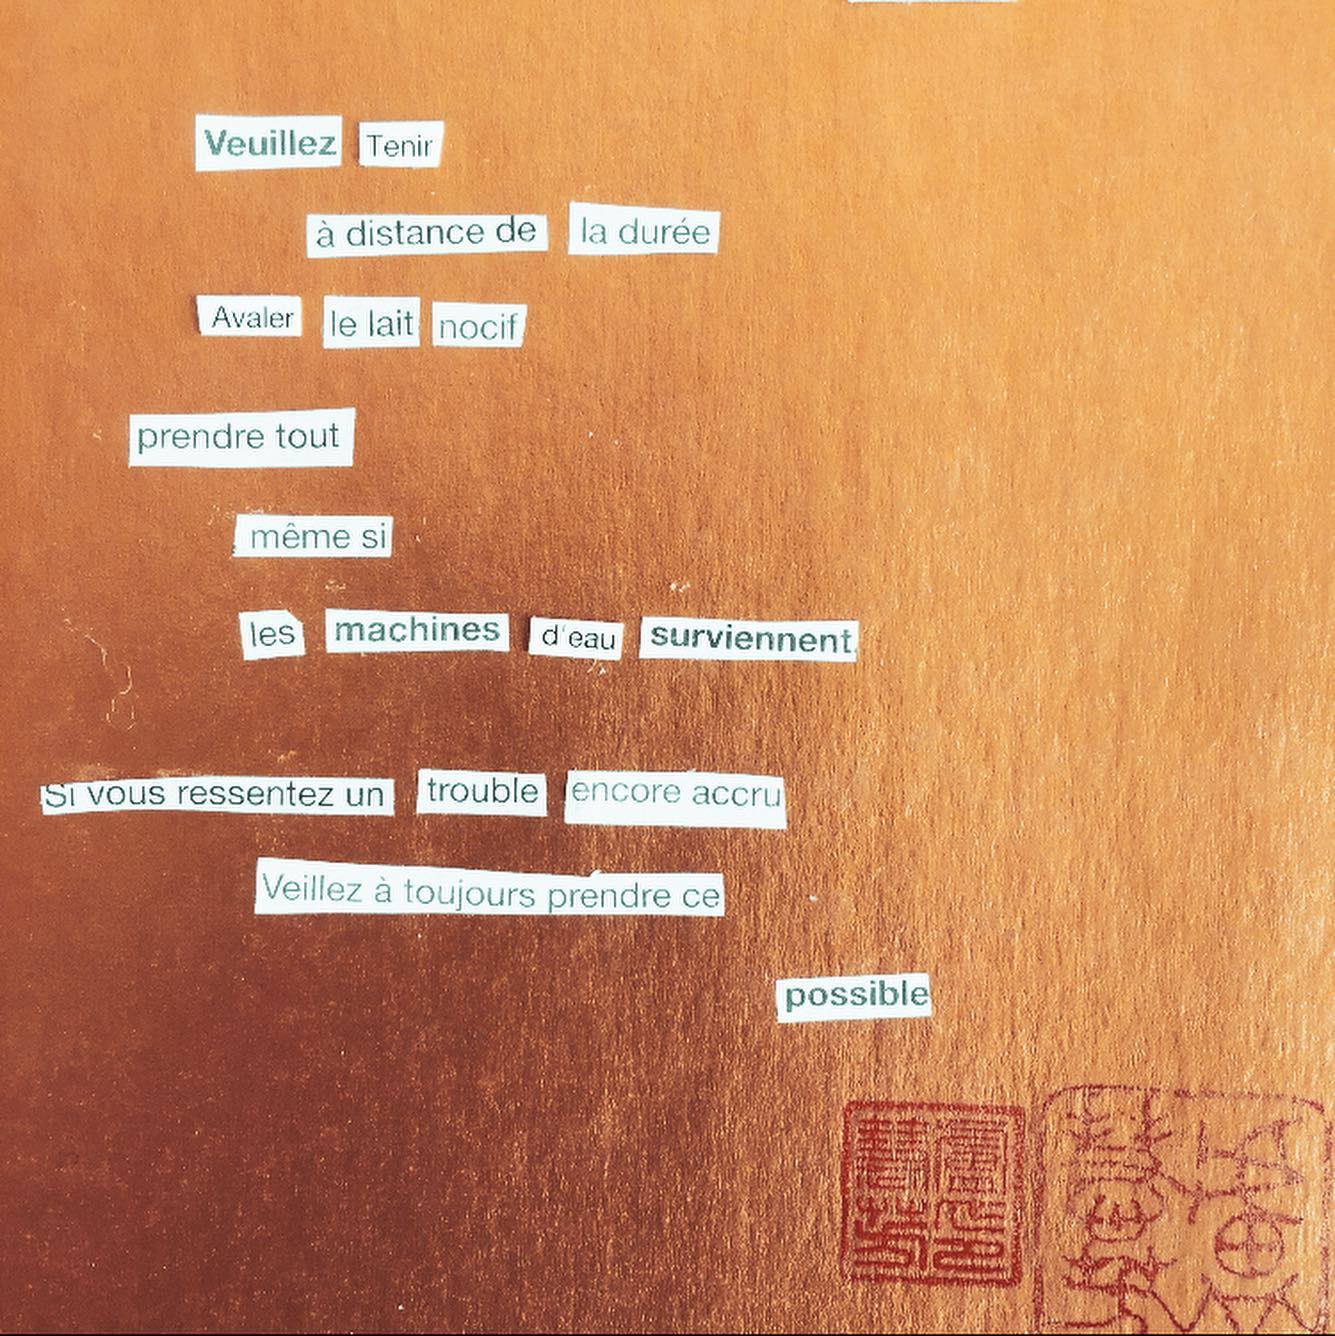 Veuillez Tenir
à distance de la durée
Avaler le lait nocif
prendre tout
même si
les machines d'eau surviennent.
Si vous ressentez un trouble encore accru
Veillez à toujours prendre ce
possible